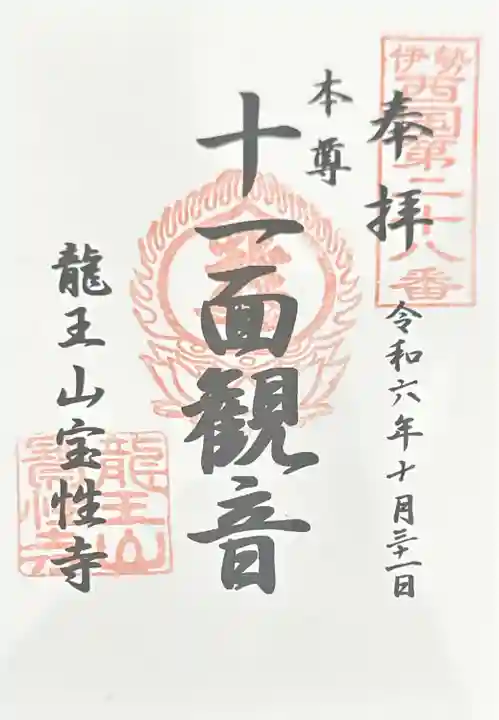 伊勢
西国第二十八番
奉拝
令和六年十月三十一日
本尊
十一面観音
龍王山宝性寺
龍王山
寶性寺